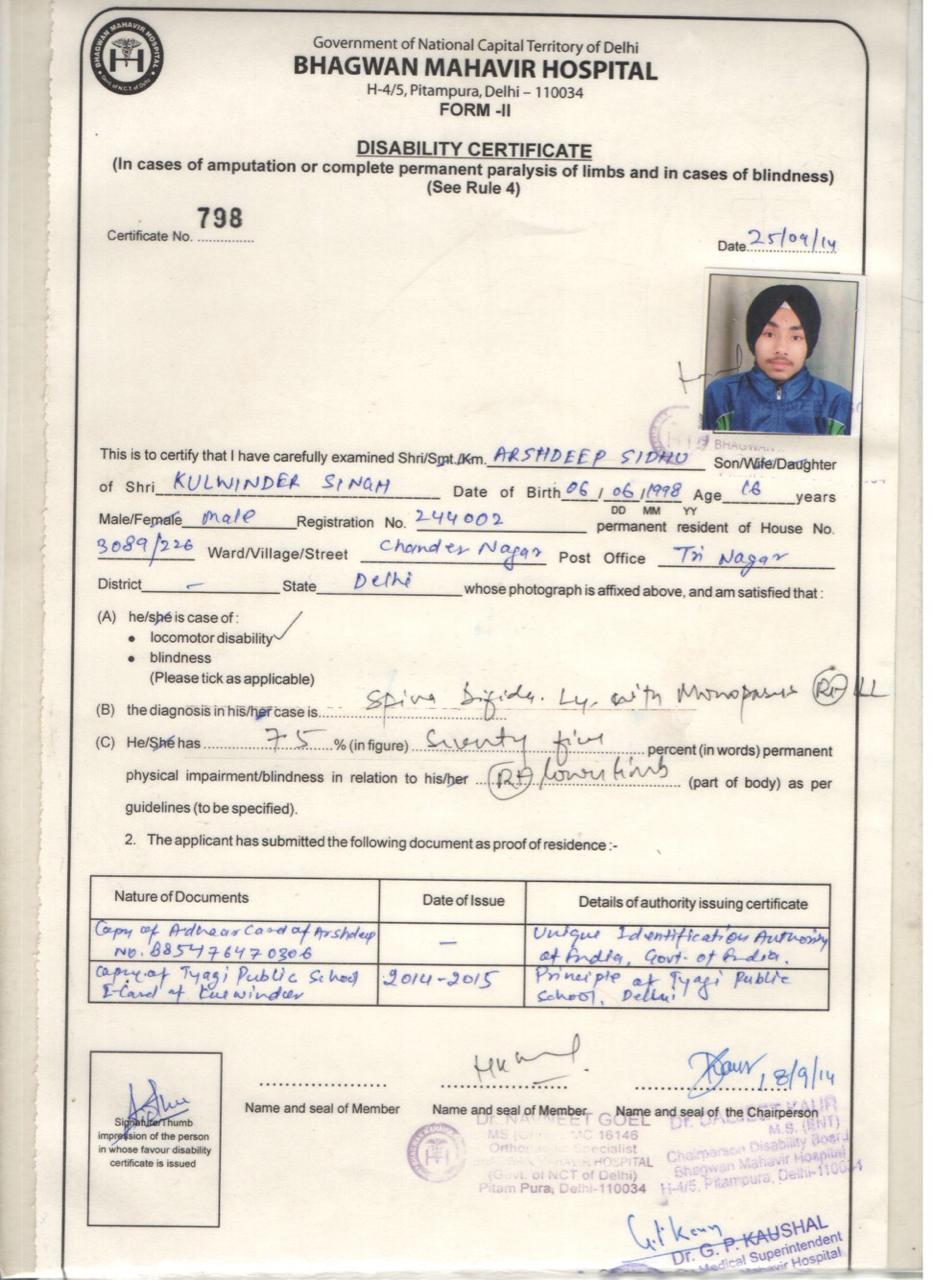 Government of National Capital Territory of Delhi
BHAGWAN MAHAVIR HOSPITAL
H-4/5, Pitampura, Delhi – 110034
FORM -II
DISABILITY CERTIFICATE
(In cases of amputation or complete permanent paralysis of limbs and in cases of blindness)
(See Rule 4)
Certificate No. 798
Date 25/09/14
This is to certify that I have carefully examined Shri/Smt./Km. ARSHDEEP SIDHU Son/Wife/Daughter
of Shri KULWINDER SINGH Date of Birth 06 / 06 / 1998 Age 16 years
DD MM YY
Male/Female Male Registration No. 244002 permanent resident of House No.
3089/226 Ward/Village/Street Chander Nagar Post Office Tri Nagar
District – State Delhi whose photograph is affixed above, and am satisfied that :
(A) he/she is case of :
• locomotor disability ✓
• blindness
(Please tick as applicable)
(B) the diagnosis in his/her case is Spina Bifida with Rt LL
(C) He/She has 75 % (in figure) Seventy five percent (in words) permanent
physical impairment/blindness in relation to his/her Rt lower limb (part of body) as per
guidelines (to be specified).
2. The applicant has submitted the following document as proof of residence :-
Nature of Documents Date of Issue Details of authority issuing certificate
Copy of Adhaar Card of Arshdeep – Unique Identification Authority
No. 885476470306 of India, Govt. of India.
Copy of Tyagi Public School 2014-2015 Principle of Tyagi Public
I-Card of Kulwinder School, Delhi
18/9/14
Name and seal of Member Name and seal of Member Name and seal of the Chairperson
Signature/Thumb
impression of the person
in whose favour disability
certificate is issued
Dr. NAVNEET GOEL
16146
Orthopaedic Specialist
BHAGWAN MAHAVIR HOSPITAL
(Govt. of NCT of Delhi)
Pitam Pura, Delhi-110034
Dr. DALJEET KAUR
M.S. (ENT)
Chairperson Disability Board
Bhagwan Mahavir Hospital
H-4/5, Pitampura, Delhi-110034
Dr. G. P. KAUSHAL
Medical Superintendent
Mahavir Hospital